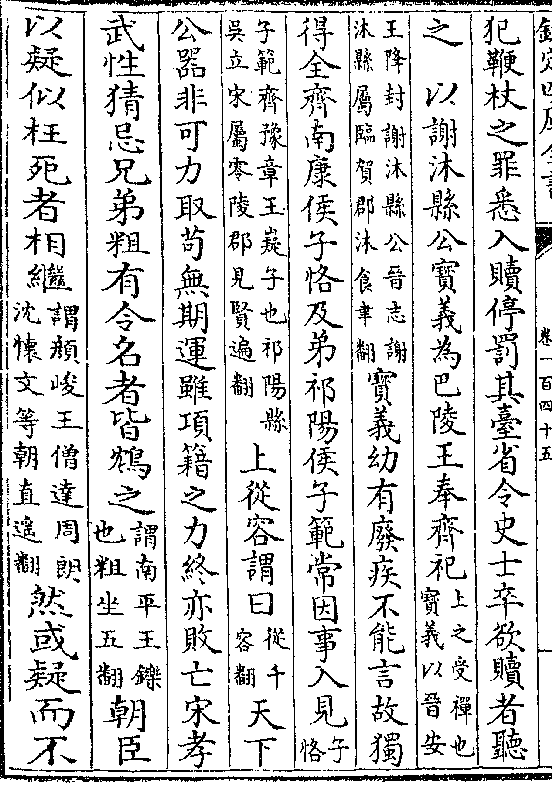 欽定四庫全書
卷一百四十五
犯鞭杖之罪悉入贖停罰其臺省令史士卒欲贖者聽
之 以謝沐縣公寶義為巴陵王奉齊祀上之受禪也寶義以晉安
王降封謝沐縣公晉志謝沐縣屬臨賀郡沐食聿翻寶義幼有廢疾不能言故獨
得全齊南康侯子恪及弟祁陽侯子範常因事入見子恪
子範齊豫章王嶷子也祁陽縣吳立宋屬零陵郡見賢遍翻上從容謂曰從千容翻天下
公器非可力取苟無期運雖項籍之力終亦敗亡宋孝
武性猜忌兄弟粗有令名者皆鴆之謂南平王鑠也粗坐五翻朝臣
以疑似枉死者相繼謂顔峻王僧達周朗沈懷文等朝直遙翻然或疑而不